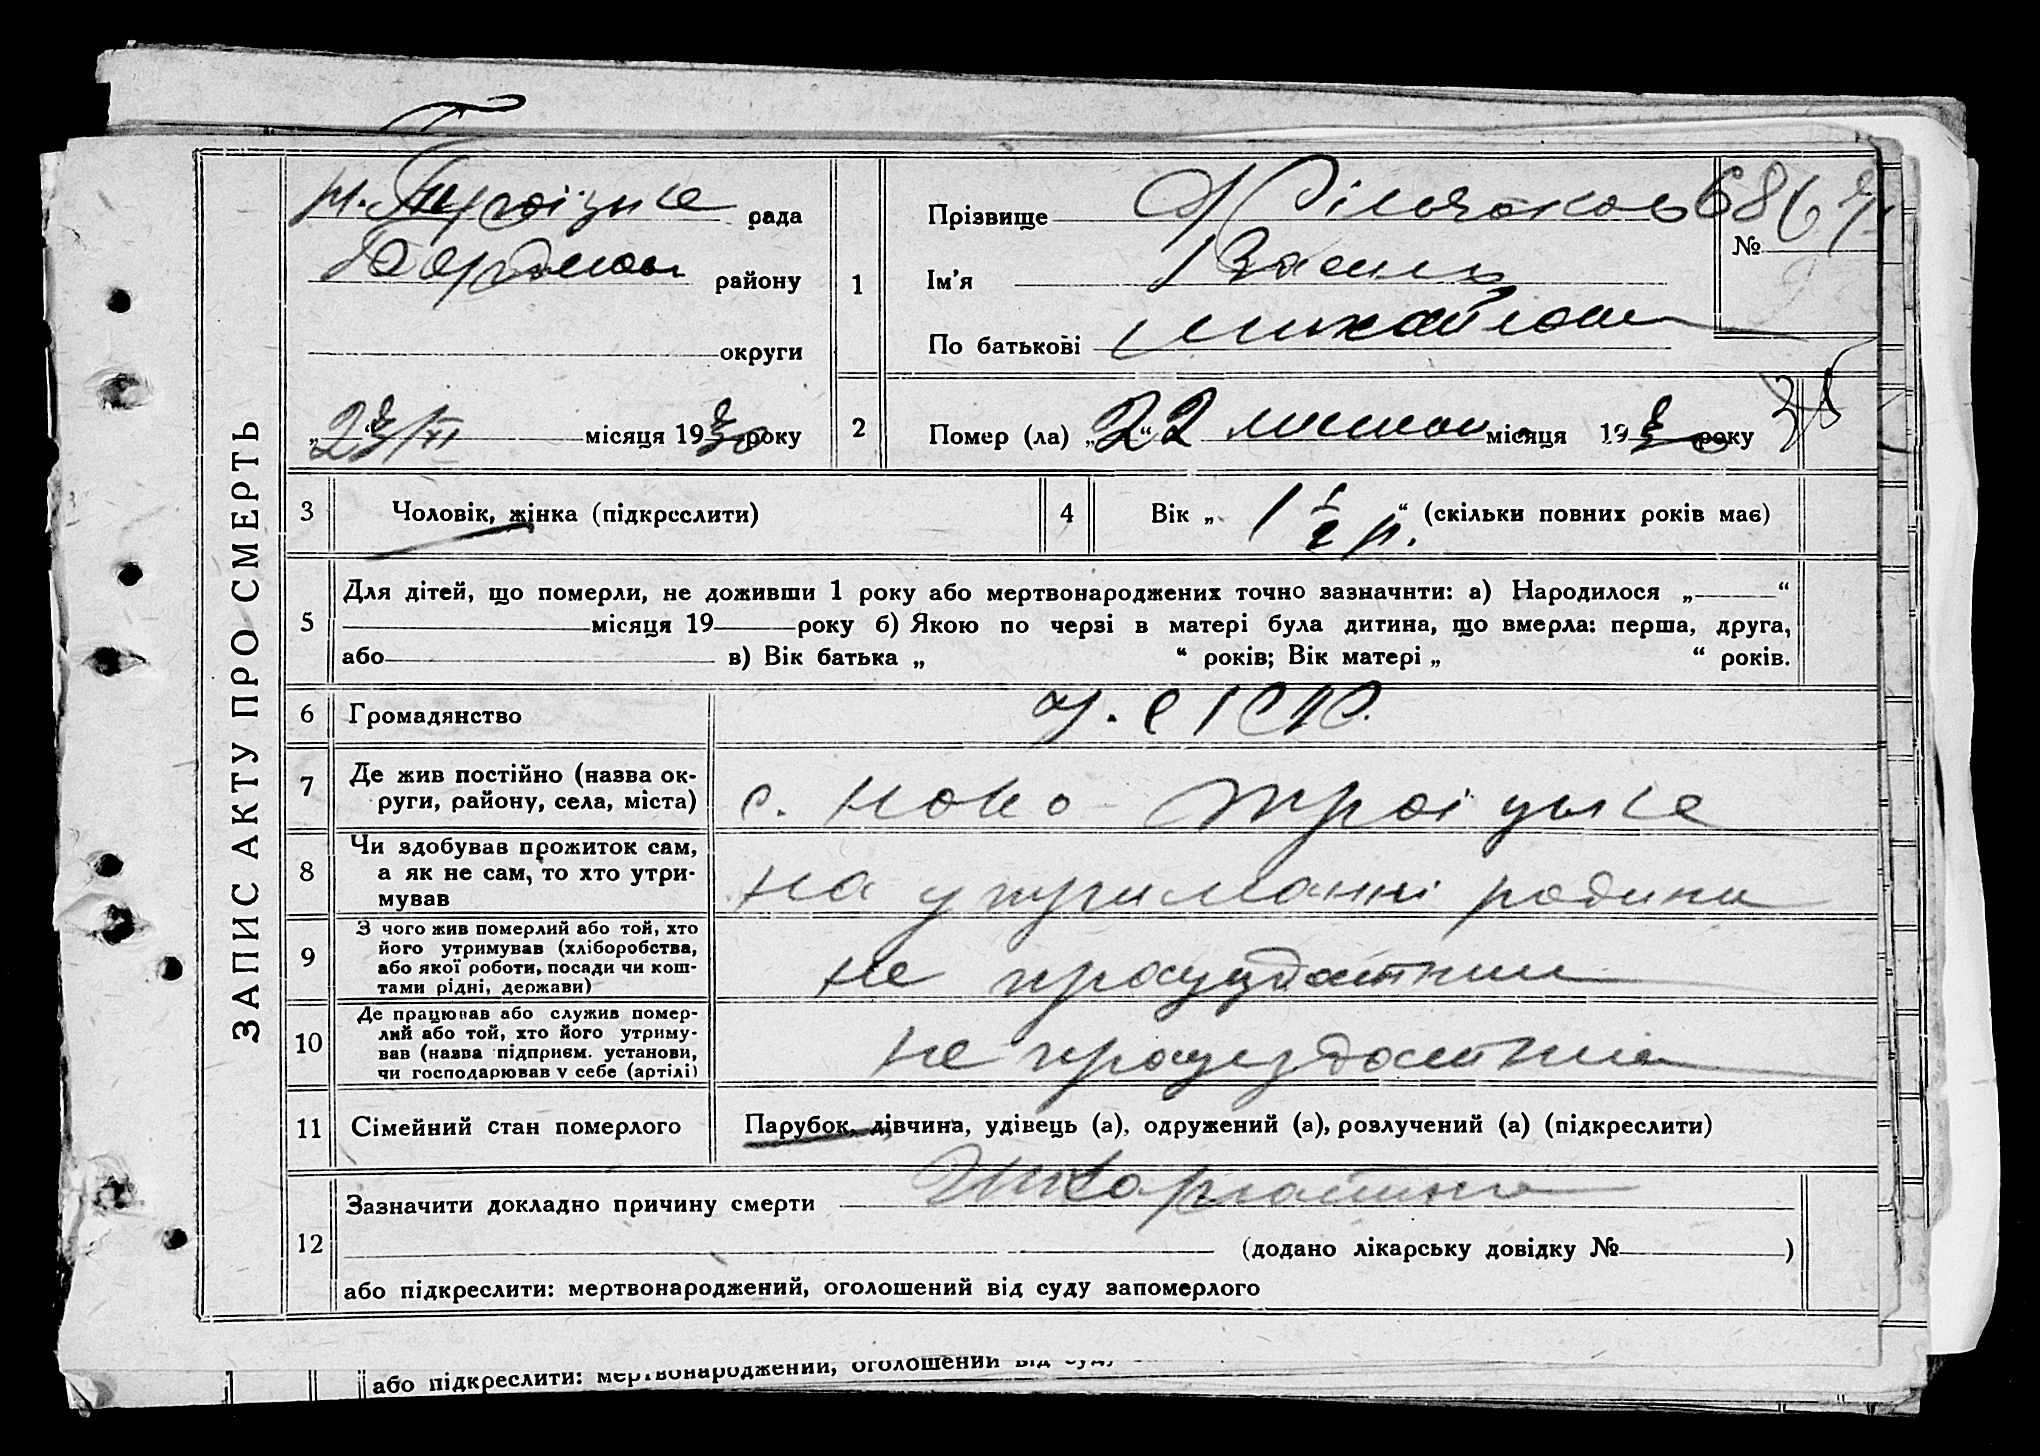 ЗАПИС АКТУ ПРО СМЕРТЬ
Н. Троїцьке рада
району
округи
„23/VII місяця 1930 року
1
Прізвище
Ім'я Василь
По батькові Михайлов
№
2
Помер (ла) „22“ липня місяця 1930 року
3
Чоловік, жінка (підкреслити)
4
Вік „1 1/2 р.“ (скільки повних років має)
5
Для дітей, що померли, не доживши 1 року або мертвонароджених точно зазначити: а) Народилося „ “
місяця 19 року б) Якою по черзі в матері була дитина, що вмерла: перша, друга,
або в) Вік батька „ “ років; Вік матері „ “ років.
6
Громадянство
У.С.Р.Р.
7
Де жив постійно (назва ок-
руги, району, села, міста)
с. Ново-Троїцьке
8
Чи здобував прожиток сам,
а як не сам, то хто утри-
мував
на утриманні родини
9
З чого жив померлий або той, хто
його утримував (хліборобства,
або якої роботи, посади чи кош-
тами рідні, держави)
не
10
Де працював або служив помер-
лий або той, хто його утриму-
вав (назва підприєм. установи,
чи господарював у себе (артілі)
не
11
Сімейний стан померлого
Парубок, дівчина, удівець (а), одружений (а), розлучений (а) (підкреслити)
12
Зазначити докладно причину смерти Шкарлатина
(додано лікарську довідку № )
або підкреслити: мертвонароджений, оголошений від суду запомерлого
або підкреслити: мертвонароджений, оголошений від суду